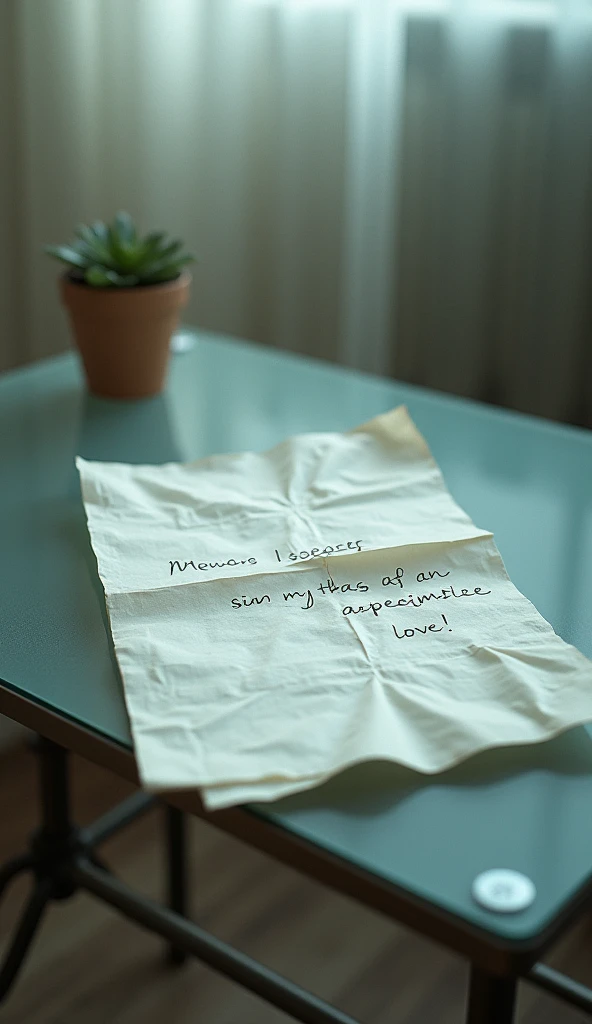 Mewors I soepres
sin my thas af an
aspecimslee
love!